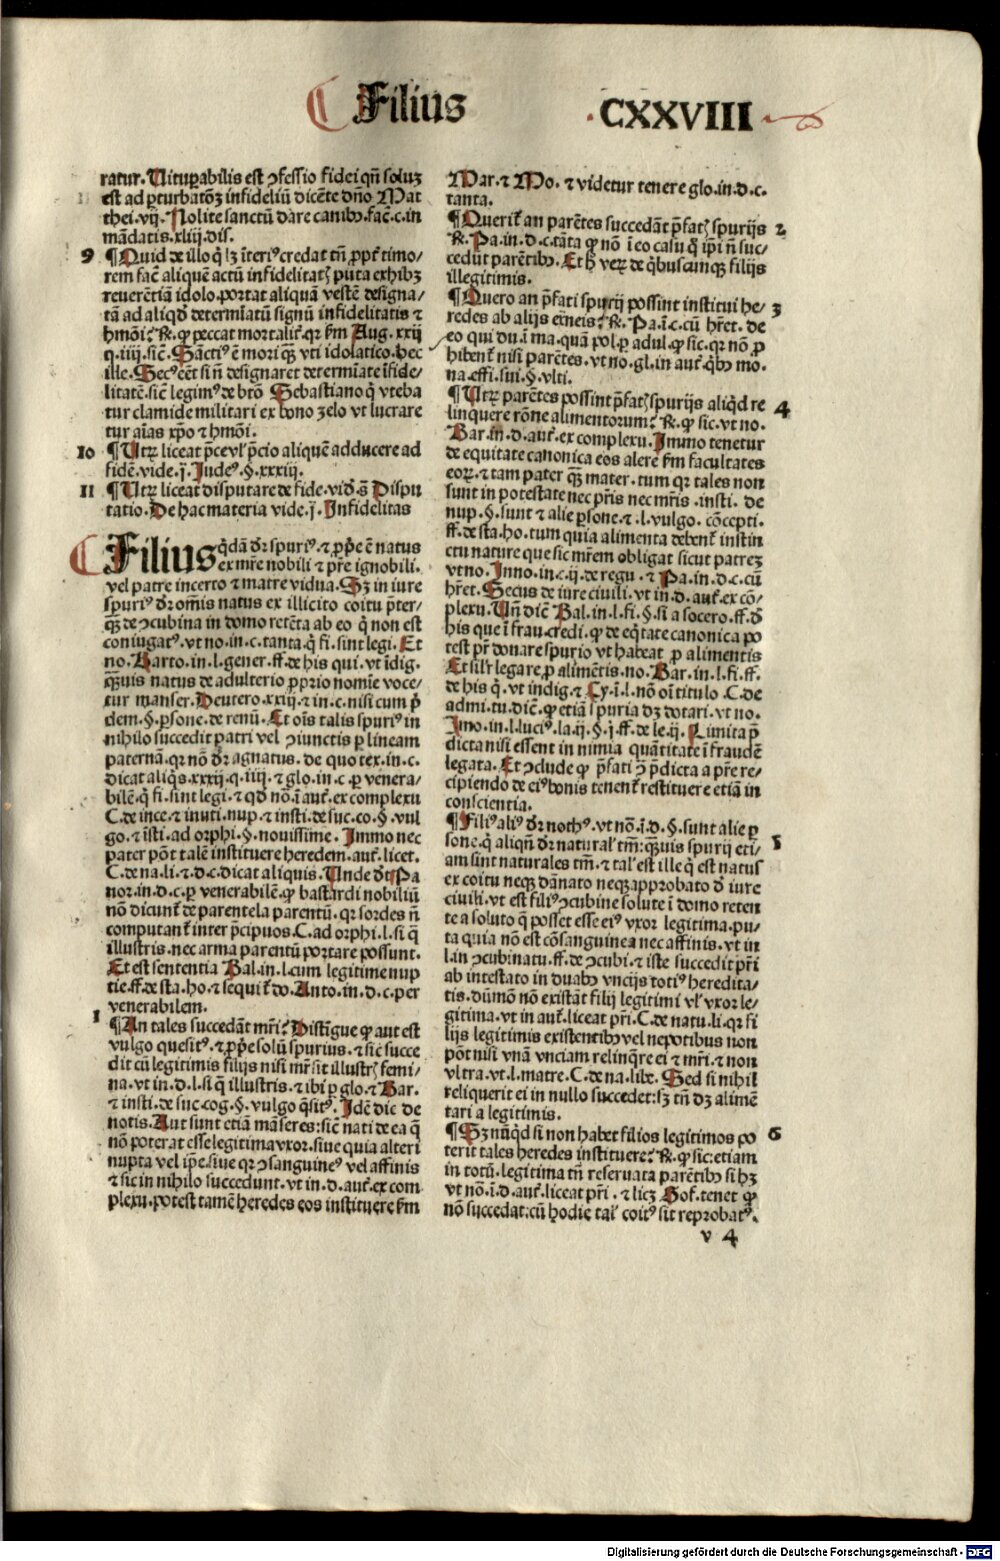 Filius
.CXXVIII
ratur. Uituꝑabilis est ꝯfessio fidei qn̄ soluꝫ
est ad ꝑturbatōꝫ infideliū dicēte dn̄o Mat
thei. vij. Nolite sanctū dare canibꝰ. fac̄. c. in
mādatis. xliij. dis.
9 ¶ Quid de illo q̄ lꝫ īteriꝰ credat tn̄ ꝓpt̄ timo/
rem fac̄ aliquē actū infidelitatꝭ puta exhibꝫ
reuerētiā idolo. portat aliquā vestē designa/
tā ad aliqd̄ determīatū signū infidelitatis ⁊
hmōi? R̄. ꝙ peccat mortalit̄. qꝛ fm Aug. xxij
q. iiij. sic̄. Sāctiꝰ ē mori qꝫ vti idolatico. hec
ille. Secꝰ eēt si n̄ designaret determīate īfide/
litatē. sic̄ legimꝰ de btō Sebastiano q̄ vteba
tur clamide militari ex bono zelo vt lucrare
tur aīas xp̄o ⁊ hmōi.
10 ¶ Utꝝ liceat p̄ce vl̓ p̄cio aliquē adducere ad
fidē. vide. j. Judeꝰ. §. xxxiij.
11 ¶ Utꝝ liceat disputare de fide. vid̄. s̄ Dispu
tatio. De hac materia vide. j. Infidelitas
Filius qdā dr̄ spuriꝰ. ⁊ ꝓp̄e ē natus
ex mr̄e nobili ⁊ pr̄e ignobili.
vel patre incerto ⁊ matre vidua. Sꝫ in iure
spuriꝰ dr̄ om̄is natus ex illicito coitu p̄ter/
qꝫ de ꝯcubina in domo retēta ab eo q̄ non est
coniugatꝰ. vt no. in. c. tanta. q̄ fi. sint legi. Et
no. Barto. in. l. gener. ff. de his qui. vt īdig.
qꝫuis natus de adulterio ꝓprio nomīe voce/
tur manser. Deutero. xxiij. ⁊ in. c. nisi cum p̄
dem. §. ꝑsone. de renū. Et oīs talis spuriꝰ in
nihilo succedit patri vel ꝯiunctis ꝑ lineam
paternā. qꝛ nō dr̄ agnatus. de quo tex. in. c.
dicat aliq̄s. xxxij. q. iiij. ⁊ glo. in. c. ꝑ venera/
bilē. q̄ fi. sint legi. ⁊ qd̄ nō. ī aut̄. ex complexu
C. de ince. ⁊ inuti. nup. ⁊ insti. de suc. co. §. vul
go. ⁊ īsti. ad orphi. §. nouissime. Immo nec
pater pōt talē instituere heredem. aut̄. licet.
C. de na. li. ⁊ d. c. dicat aliquis. Unde dr̄t Pa
nor. in. d. c. ꝑ venerabilē. ꝙ bastardi nobiliū
nō dicunt̄ de parentela parentū. qꝛ sordes n̄
computant̄ inter p̄cipuos. C. ad orphi. l. si q̄
illustris. nec arma parentū portare possunt.
Et est sententia Bal. in. l. cum legitime nup
tie. ff. de sta. ho. ⁊ sequit̄ do. Anto. in. d. c. per
venerabilem.
1 ¶ An tales succedāt mr̄i? Distīgue ꝙ aut est
vulgo quesitꝰ. ⁊ ꝓp̄e solū spurius. ⁊ sic̄ succe
dit cū legitimis filijs nisi mr̄ sit illustrꝭ femi/
na. vt in. d. l. si q̄ illustris. ⁊ ibi ꝑ glo. ⁊ Bar.
⁊ insti. de suc. cog. §. vulgo q̄sitꝰ. Idē dic de
notis. Aut sunt etiā māseres: sic̄ nati de ea q̄
nō poterat esse legitima vxor. siue quia alteri
nupta vel ip̄e. siue qꝛ ꝯsanguineꝰ vel affinis
⁊ sic in nihilo succedunt. vt in. d. aut̄. ex com
plexu. potest tamē heredes eos instituere fm
Mar. ⁊ Mo. ⁊ videtur tenere glo. in. d. c.
tanta.
¶ Querit̄ an parētes succedāt p̄fatꝭ spurijs 2
R̄. Pa. in. d. c. tāta ꝙ nō ī eo casu q̄ ip̄i n̄ suc/
cedūt parētibꝰ. Et h̄ veꝝ de q̄buscunqꝫ filijs
illegitimis.
¶ Quero an p̄fati spurij possint institui he/ 3
redes ab alijs exn̄eis? R̄. Pa. ī. c. cū hr̄et. de
eo qui du. ī ma. quā pol. ꝑ adul. ꝙ sic. qꝛ nō ꝓ
hibent̄ nisi parētes. vt no. gl. in aut̄. q̄bꝰ mo.
na. effi. sui. §. vlti.
¶ Utꝝ parētes possint p̄fatꝭ spurijs aliqd̄ re 4
linquere rōne alimentorum? R̄. ꝙ sic. vt no.
Bar. in. d. aut̄. ex complexu. Immo tenetur
de equitate canonica eos alere fm facultates
eoꝝ. ⁊ tam pater qꝫ mater. tum qꝛ tales non
sunt in potestate nec pr̄is nec mr̄is. insti. de
nup. §. sunt ⁊ alie ꝑsone. ⁊ l. vulgo. cōcepti.
ff. de sta. ho. tum quia alimenta debent̄ instin
ctu nature que sic mr̄em obligat sicut patreꝫ
vt no. Inno. in. c. ij. de regu. ⁊ Pa. in. d. c. cū
hr̄et. Secus de iure ciuili. vt in. d. aut̄. ex cō/
plexu. Un̄ dic̄ Bal. in. l. fi. §. si a socero. ff. d̄
his que ī frau. credi. ꝙ de eq̄tate canonica po
test pr̄ donare spurio vt habeat ꝓ alimentis
Et sil̓r legare ꝓ alimētis. no. Bar. in. l. fi. ff.
de his q̄. vt indig. ⁊ Cy. ī. l. nō oī titulo. C. de
admi. tu. dic̄. ꝙ etiā spuria dꝫ dotari. vt no.
Imo. in. l. luciꝰ. la. ij. §. j. ff. de le. ij. Limita p̄
dicta nisi essent in nimia quātitate ī fraudē
legata. Et ꝯclude ꝙ p̄fati ꝯ p̄dicta a pr̄e re/
cipiendo de eiꝰ bonis tenent̄ restituere etiā in
conscientia.
¶ Filiꝰ aliꝰ dr̄ nothꝰ. vt nō. ī. d. §. sunt alie ꝑ
sone. q̄ aliqn̄ dr̄ natural̓ tm̄: qꝫuis spurij eti/ 5
am sint naturales tm̄. ⁊ tal̓ est ille q̄ est natus
ex coitu neqꝫ dānato neqꝫ approbato d̄ iure
ciuili. vt est filiꝰ ꝯcubine solute ī domo reten
te a soluto q̄ posset esse eiꝰ vxor legitima. pu/
ta quia nō est cōsanguinea nec affinis. vt in
l. in ꝯcubinatu. ff. de ꝯcubi. ⁊ iste succedit pr̄i
ab intestato in duabꝰ vncijs totiꝰ heredita/
tis. dūmō nō existāt filij legitimi vl̓ vxor le/
gitima. vt in aut̄. liceat pr̄i. C. de natu. li. qꝛ fi
lijs legitimis existentibꝰ vel nepotibus non
pōt nisi vnā vnciam relinq̄re ei ⁊ mr̄i. ⁊ non
vltra. vt. l. matre. C. de na. libe. Sed si nihil
reliquerit ei in nullo succedet: sꝫ tn̄ dꝫ alimē
tari a legitimis.
¶ Sꝫ nūqd̄ si non habet filios legitimos po 6
terit tales heredes instituere? R̄. ꝙ sic: etiam
in totū. legitima tn̄ reseruata parētibꝰ si hꝫ
vt nō. ī. d. aut̄. liceat pr̄i. ⁊ licꝫ Hos. tenet ꝙ
nō succedat: cū hodie tal̓ coitꝰ sit reprobatꝰ.
v 4
Digitalisierung gefördert durch die Deutsche Forschungsgemeinschaft - DFG